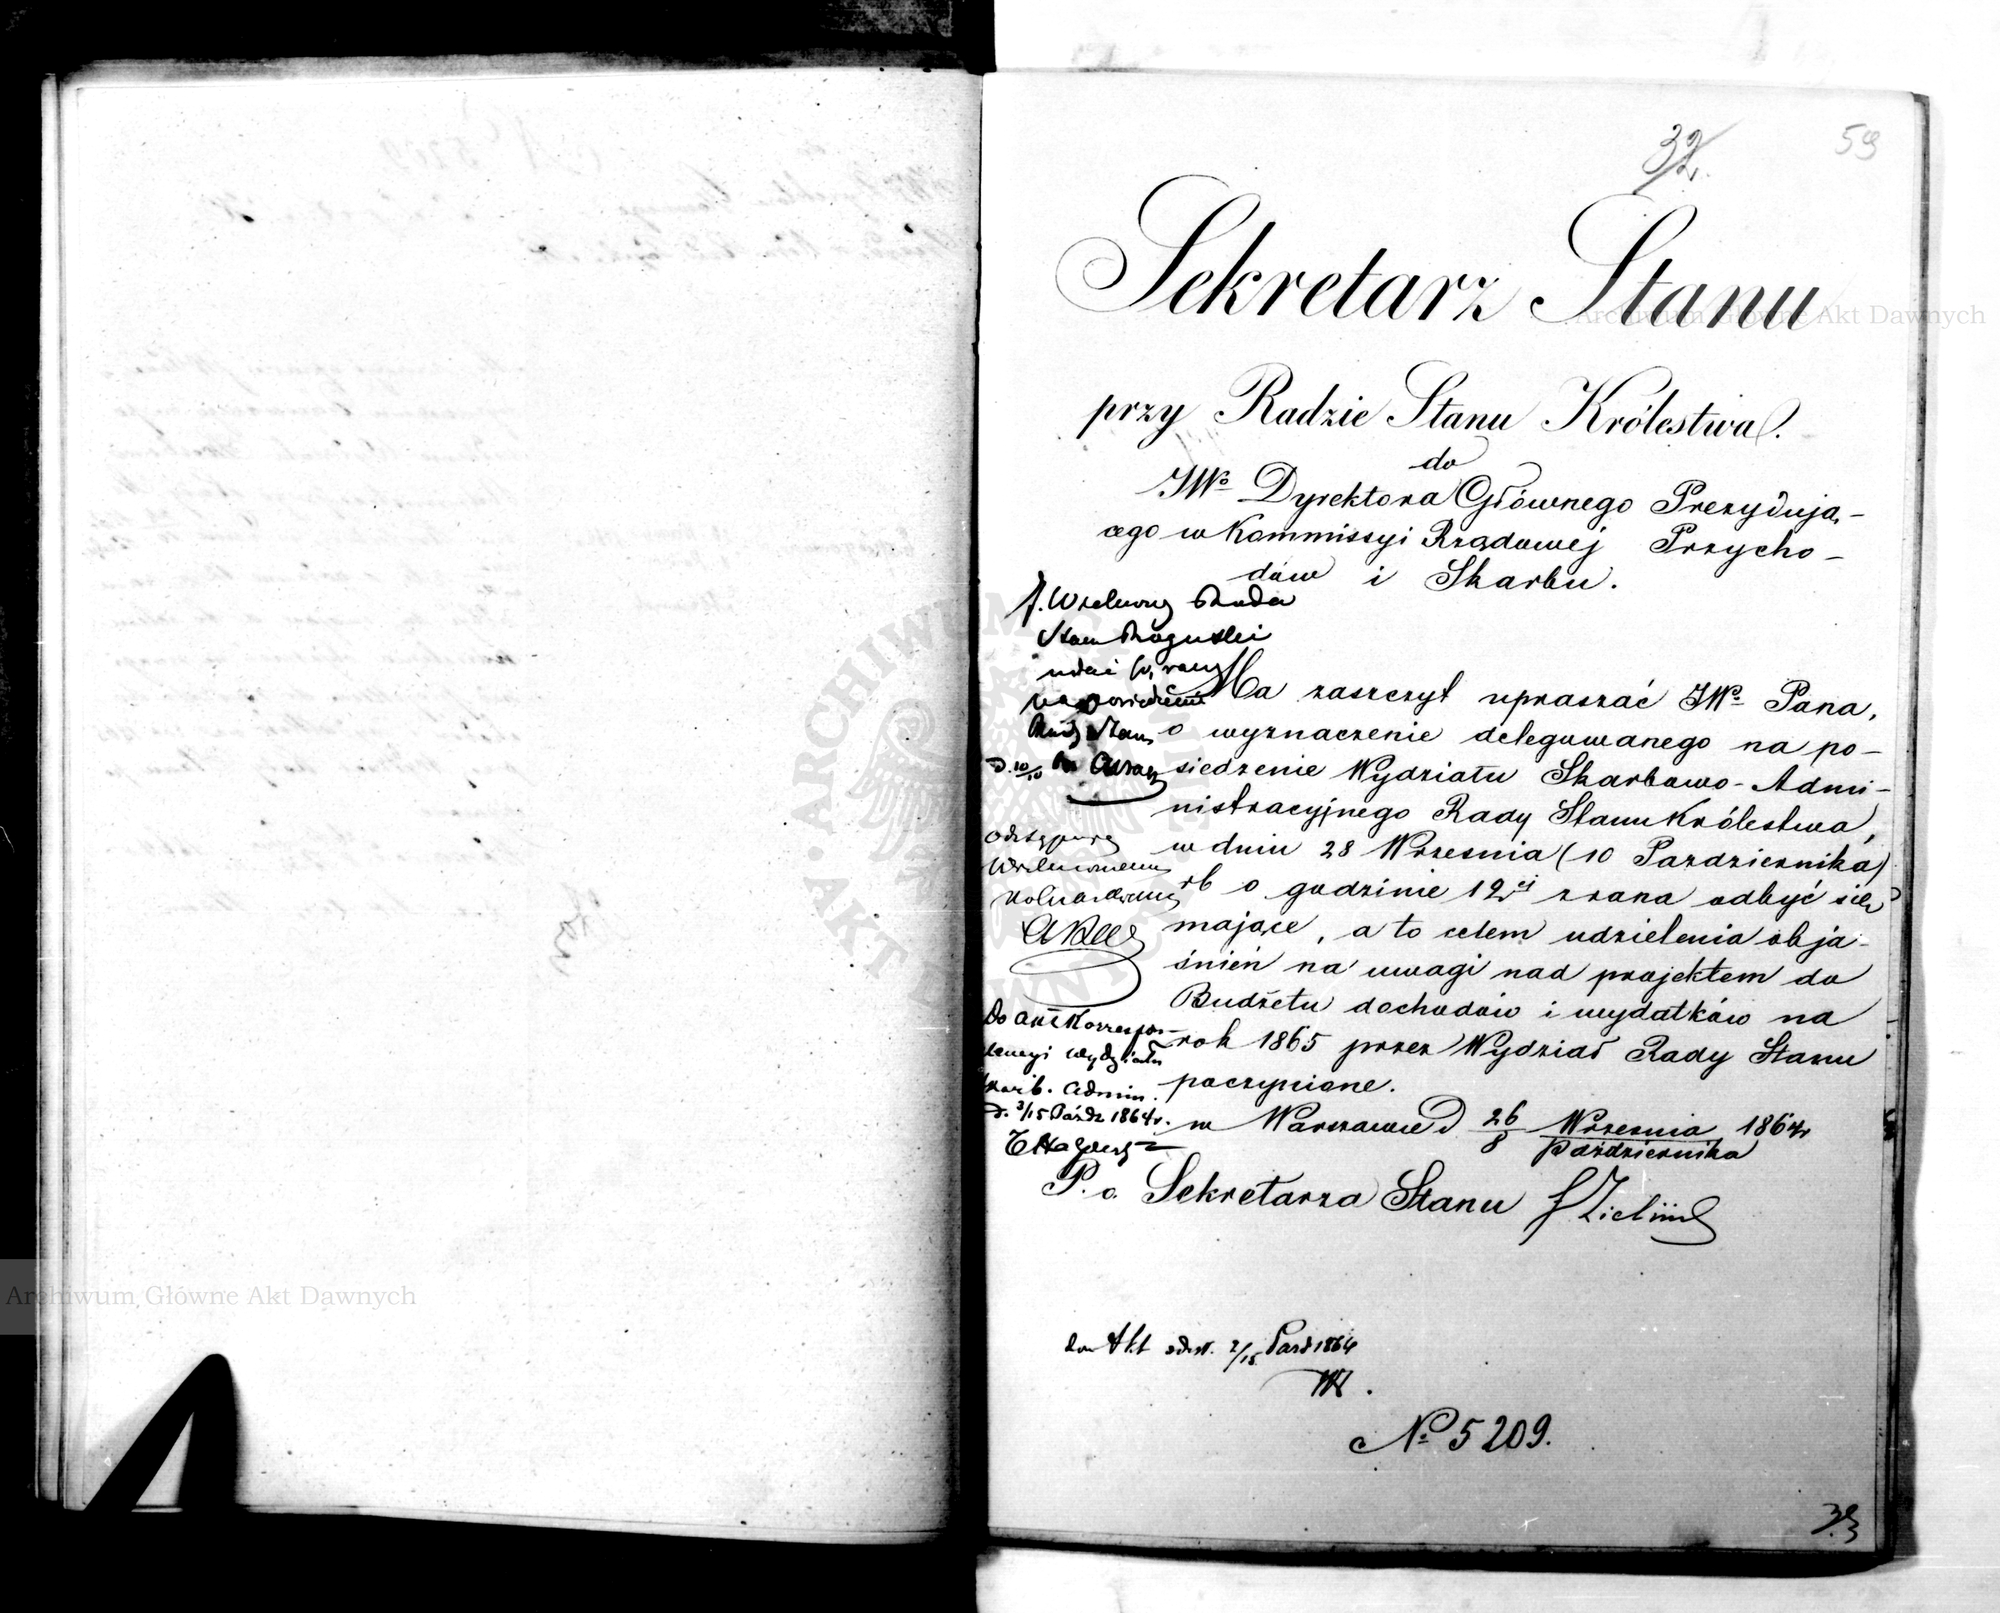 32.
59
Sekretarz Stanu
przy Radzie Stanu Królestwa.
do
JWo Dyrektora Głównego Prezydują-
cego w Kommissyi Rządowej Przycho-
dów i Skarbu.
J. Wielmny Radca
Stanu Roguski
udać się raczy
na posiedzenie
Rady Stanu
d. 10/10
Ma zaszczyt upraszać JWo Pana,
o wyznaczenie delegowanego na po-
siedzenie Wydziału Skarbowo-Admi-
nistracyjnego Rady Stanu Królestwa,
w dniu 28 Wrzesnia (10 Pazdziernika)
rb o godzinie 12ej zrana odbyć się
mające, a to celem udzielenia obja-
śnień na uwagi nad projektem do
Budżetu dochodów i wydatków na
rok 1865 przez Wydział Rady Stanu
poczynione.
Do Akt Korrespon-
dencyi Wydziału
Skarb. Admin.
d. 3/15 Paźdz 1864 r.
w Warszawie d 26/8 Wrzesnia/Pazdziernika 1864 r
P. o. Sekretarza Stanu
do Akt 3/15 Pazd 1864
No 5209.
33
Archiwum Główne Akt Dawnych
Archiwum Główne Akt Dawnych